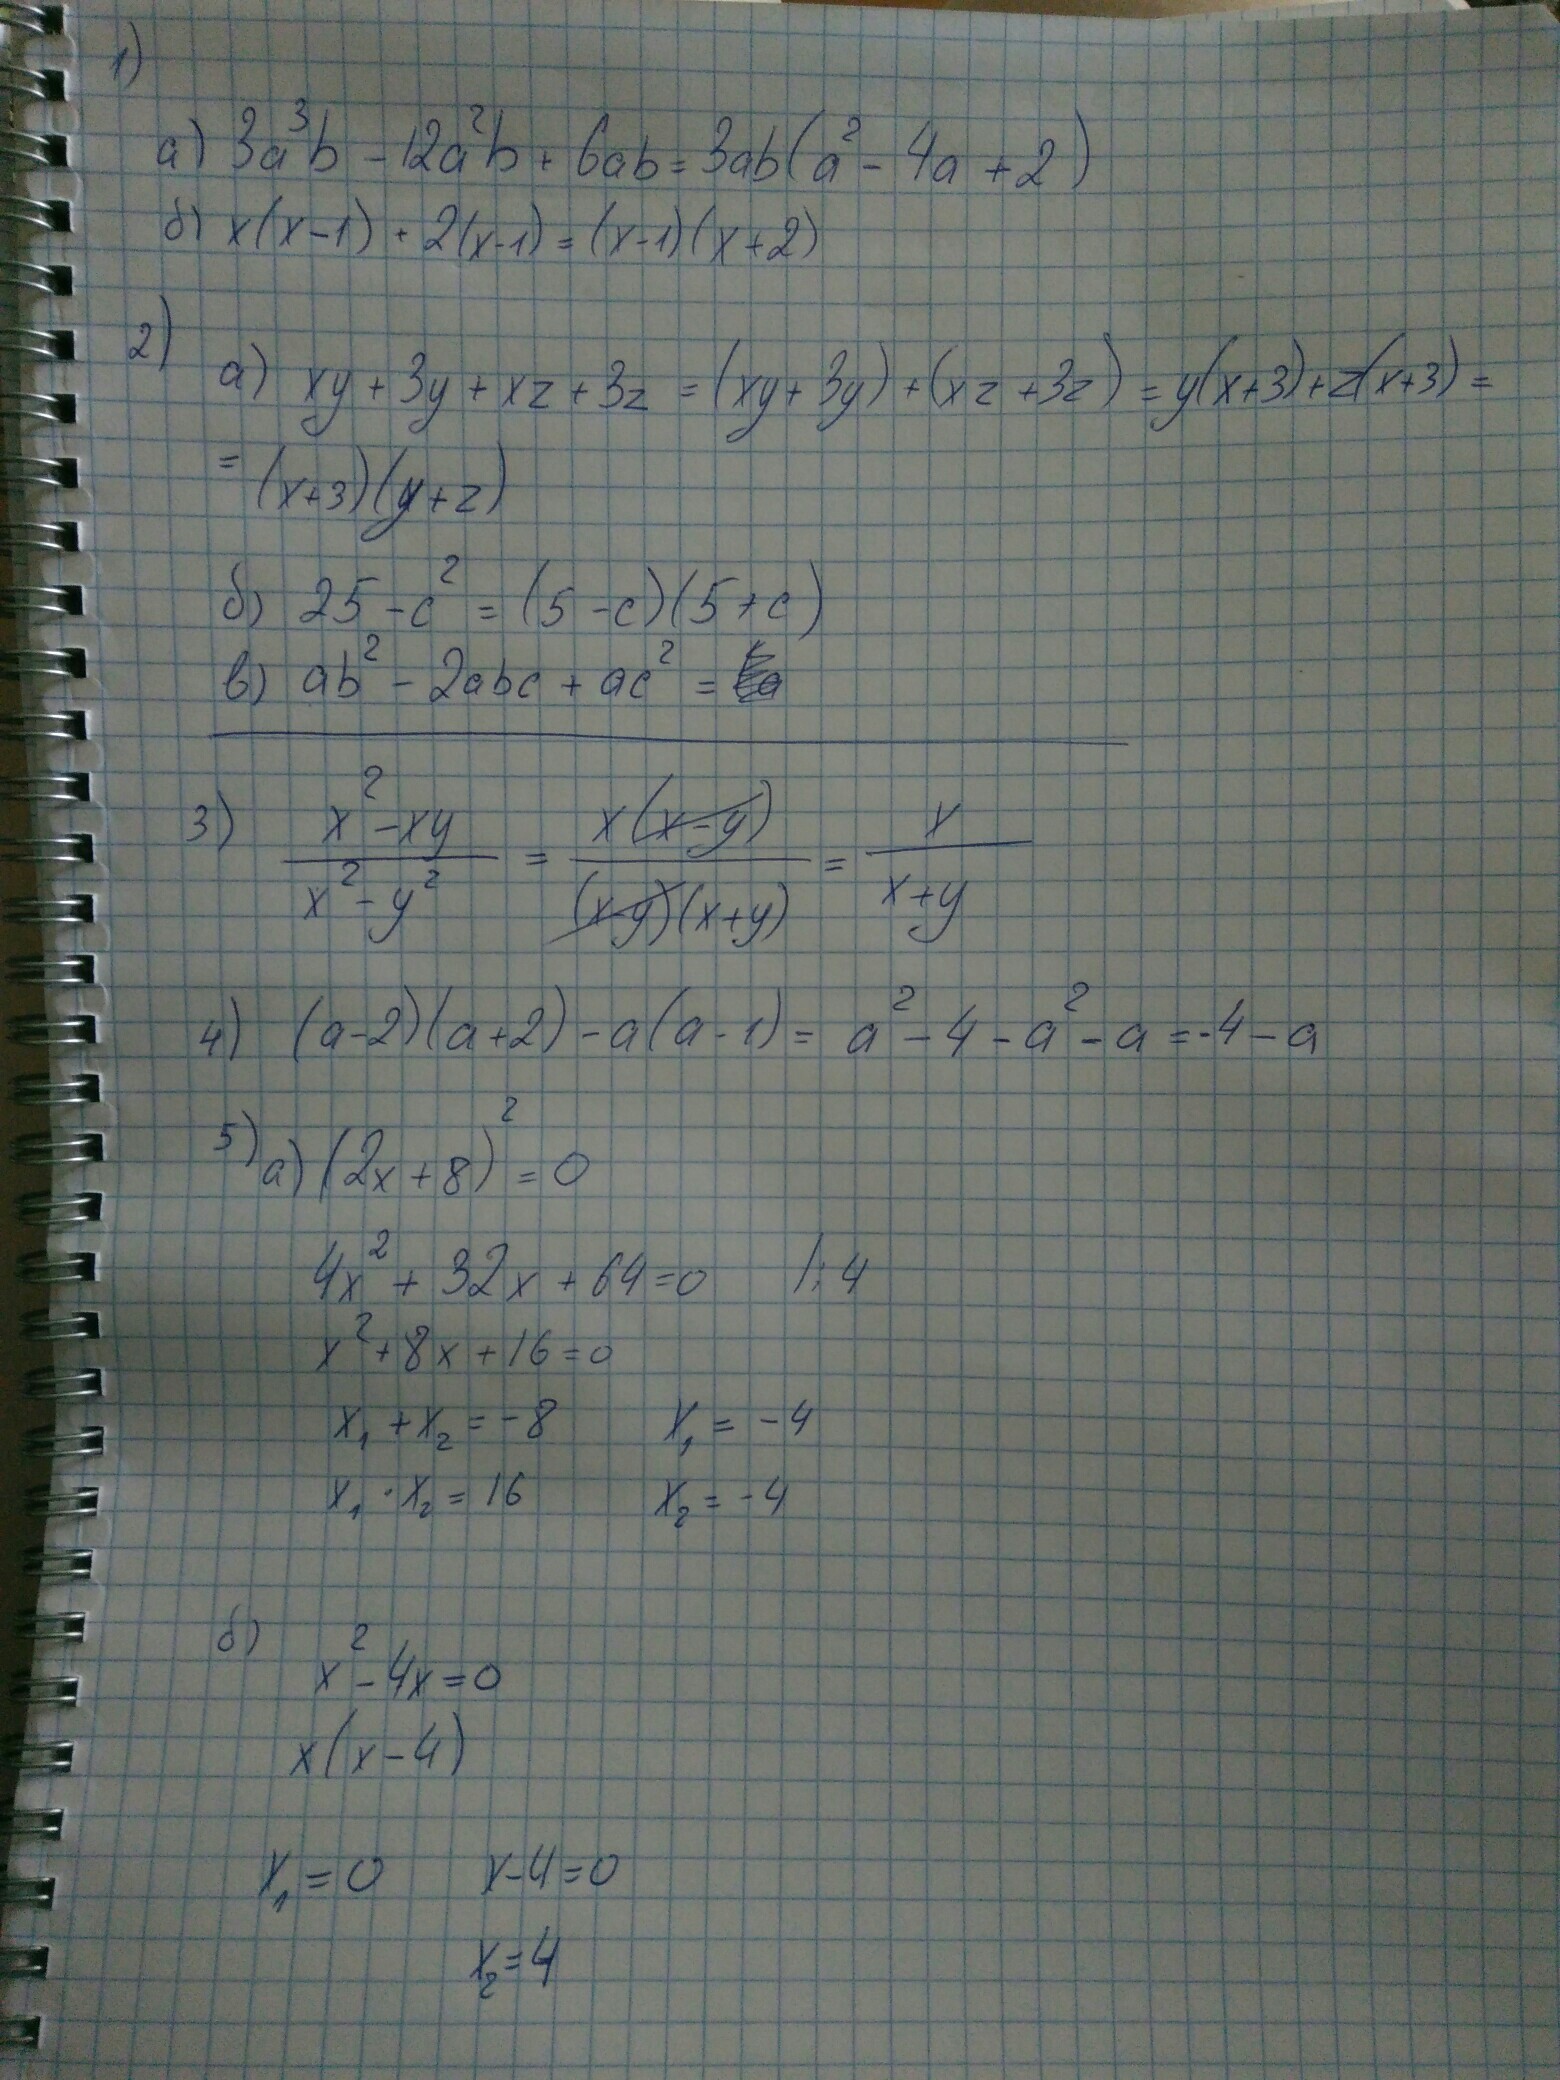 1)
а) 3a³b - 12a²b + 6ab = 3ab(a² - 4a + 2)
б) x(x-1) + 2(x-1) = (x-1)(x+2)
2)
а) xy + 3y + xz + 3z = (xy + 3y) + (xz + 3z) = y(x+3) + z(x+3) =
= (x+3)(y+z)
б) 25 - c² = (5 - c)(5 + c)
в) ab² - 2abc + ac² =
3) (x² - xy)/(x² - y²) = x(x-y)/((x-y)(x+y)) = x/(x+y)
4) (a-2)(a+2) - a(a-1) = a² - 4 - a² - a = -4 - a
5) а) (2x + 8)² = 0
4x² + 32x + 64 = 0 /:4
x² + 8x + 16 = 0
x₁ + x₂ = -8 x₁ = -4
x₁ · x₂ = 16 x₂ = -4
б)
x² - 4x = 0
x(x - 4)
x₁ = 0 x - 4 = 0
x₂ = 4